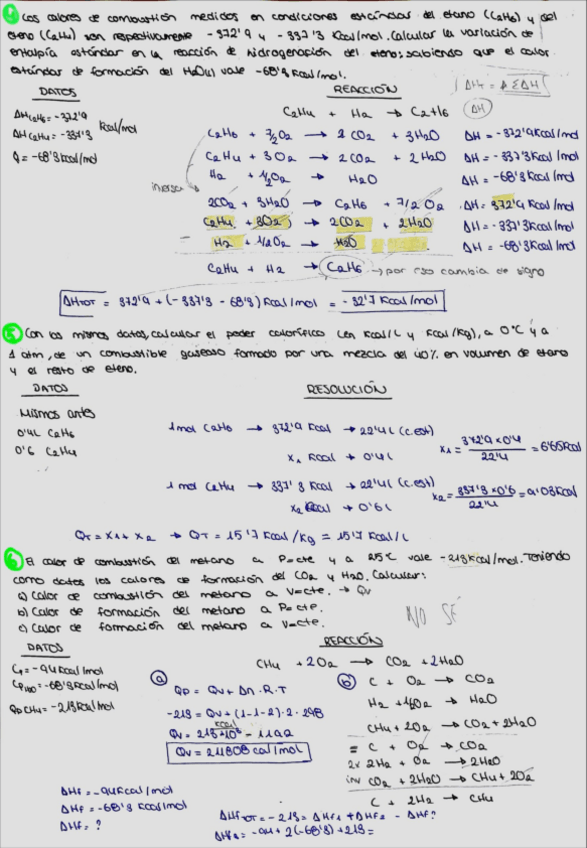 4 Los calores de combustión medidos en condiciones estándar del etano (C2H6) y del
eteno (C2H4) son respectivamente -372'9 y -337'3 Kcal/mol. Calcular la variación de
entalpía estándar en la reacción de hidrogenación del eteno; sabiendo que el calor
estándar de formación del H2O(l) vale -68'3 Kcal/mol.
DATOS
REACCIÓN
ΔH
C2H4 + H2 → C2H6
ΔH C2H6 = -372'9
ΔH C2H4 = -337'3
Kcal/mol
Q = -68'3 Kcal/mol
C2H6 + 7/2 O2 → 2 CO2 + 3H2O ΔH = -372'9 Kcal/mol
C2H4 + 3O2 → 2CO2 + 2H2O ΔH = -337'3 Kcal/mol
H2 + 1/2O2 → H2O ΔH = -68'3 Kcal/mol
inversa
2CO2 + 3H2O → C2H6 + 7/2 O2 ΔH = 372'9 Kcal/mol
C2H4 + 3O2 → 2CO2 + 2H2O ΔH = -337'3 Kcal/mol
H2 + 1/2O2 → H2O ΔH = -68'3 Kcal/mol
C2H4 + H2 → C2H6 → por eso cambia de signo
ΔHTOT = 372'9 + (-337'3 - 68'3) Kcal/mol = -32'7 Kcal/mol
5 Con los mismos datos, calcular el poder calorífico (en Kcal/L y Kcal/Kg), a 0°C y a
1 atm, de un combustible gaseoso formado por una mezcla del 40% en volumen de etano
y el resto de eteno.
DATOS
RESOLUCIÓN
Mismos antes
0'4L C2H6
0'6 C2H4
1 mol C2H6 → 372'9 Kcal → 22'4 L (c.est)
x1 Kcal → 0'4 L
x1 = 372'9 x 0'4 / 22'4 = 6'65 Kcal
1 mol C2H4 → 337'3 Kcal → 22'4 L (c.est)
x2 Kcal → 0'6 L
x2 = 337'3 x 0'6 / 22'4 = 9'03 Kcal
QT = x1 + x2 → QT = 15'7 Kcal/Kg = 15'7 Kcal/L
6 El calor de combustión del metano a P=cte y a 25°C vale -213 Kcal/mol. Teniendo
como datos los calores de formación del CO2 y H2O. Calcular:
a) Calor de combustión del metano a V=cte. → Qv
b) Calor de formación del metano a P=cte.
c) Calor de formación del metano a V=cte.
NO SÉ
DATOS
REACCIÓN
CH4 + 2O2 → CO2 + 2H2O
= -94 Kcal/mol
= -68'3 Kcal/mol
Qp CH4 = -213 Kcal/mol
a
Qp = Qv + Δn · R · T
-213 = Qv + (1-1-2) · 2 · 298
Qv = 213 · 10³ - 1192
Kcal
Qv = 211808 cal/mol
b
C + O2 → CO2
H2 + 1/2O2 → H2O
CH4 + 2O2 → CO2 + 2H2O
= C + O2 → CO2
2x 2H2 + O2 → 2H2O
inv CO2 + 2H2O → CH4 + 2O2
C + 2H2 → CH4
ΔHf = -94 Kcal/mol
ΔHf = -68'3 Kcal/mol
ΔHf = ?
ΔHfTOT = -213 = ΔHf1 + ΔHf2 - ΔHf?
ΔHf3 = -94 + 2(-68'3) + 213 =